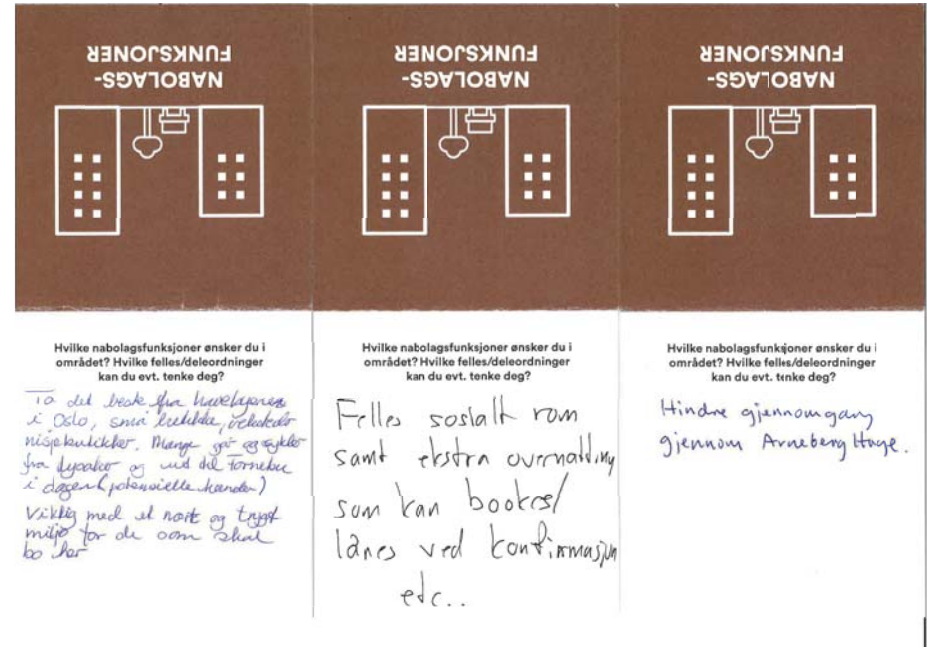 NABOLAGS-
FUNKSJONER
Hvilke nabolagsfunksjoner ønsker du i
området? Hvilke felles/deleordninger
kan du evt. tenke deg?
Ta det beste fra havebyene
i Oslo, små butikker,
nisjebutikker. Mange går og sykler
fra Lysaker og ut til Fornebu
i dagen (potensielle kunder)
Viktig med et nært og trygt
miljø for de som skal
bo her
NABOLAGS-
FUNKSJONER
Hvilke nabolagsfunksjoner ønsker du i
området? Hvilke felles/deleordninger
kan du evt. tenke deg?
Felles sosialt rom
samt ekstra overnatting
som kan bookes/
lånes ved konfirmasjon
etc..
NABOLAGS-
FUNKSJONER
Hvilke nabolagsfunksjoner ønsker du i
området? Hvilke felles/deleordninger
kan du evt. tenke deg?
Hindre gjennomgang
gjennom Arneberg Hage.